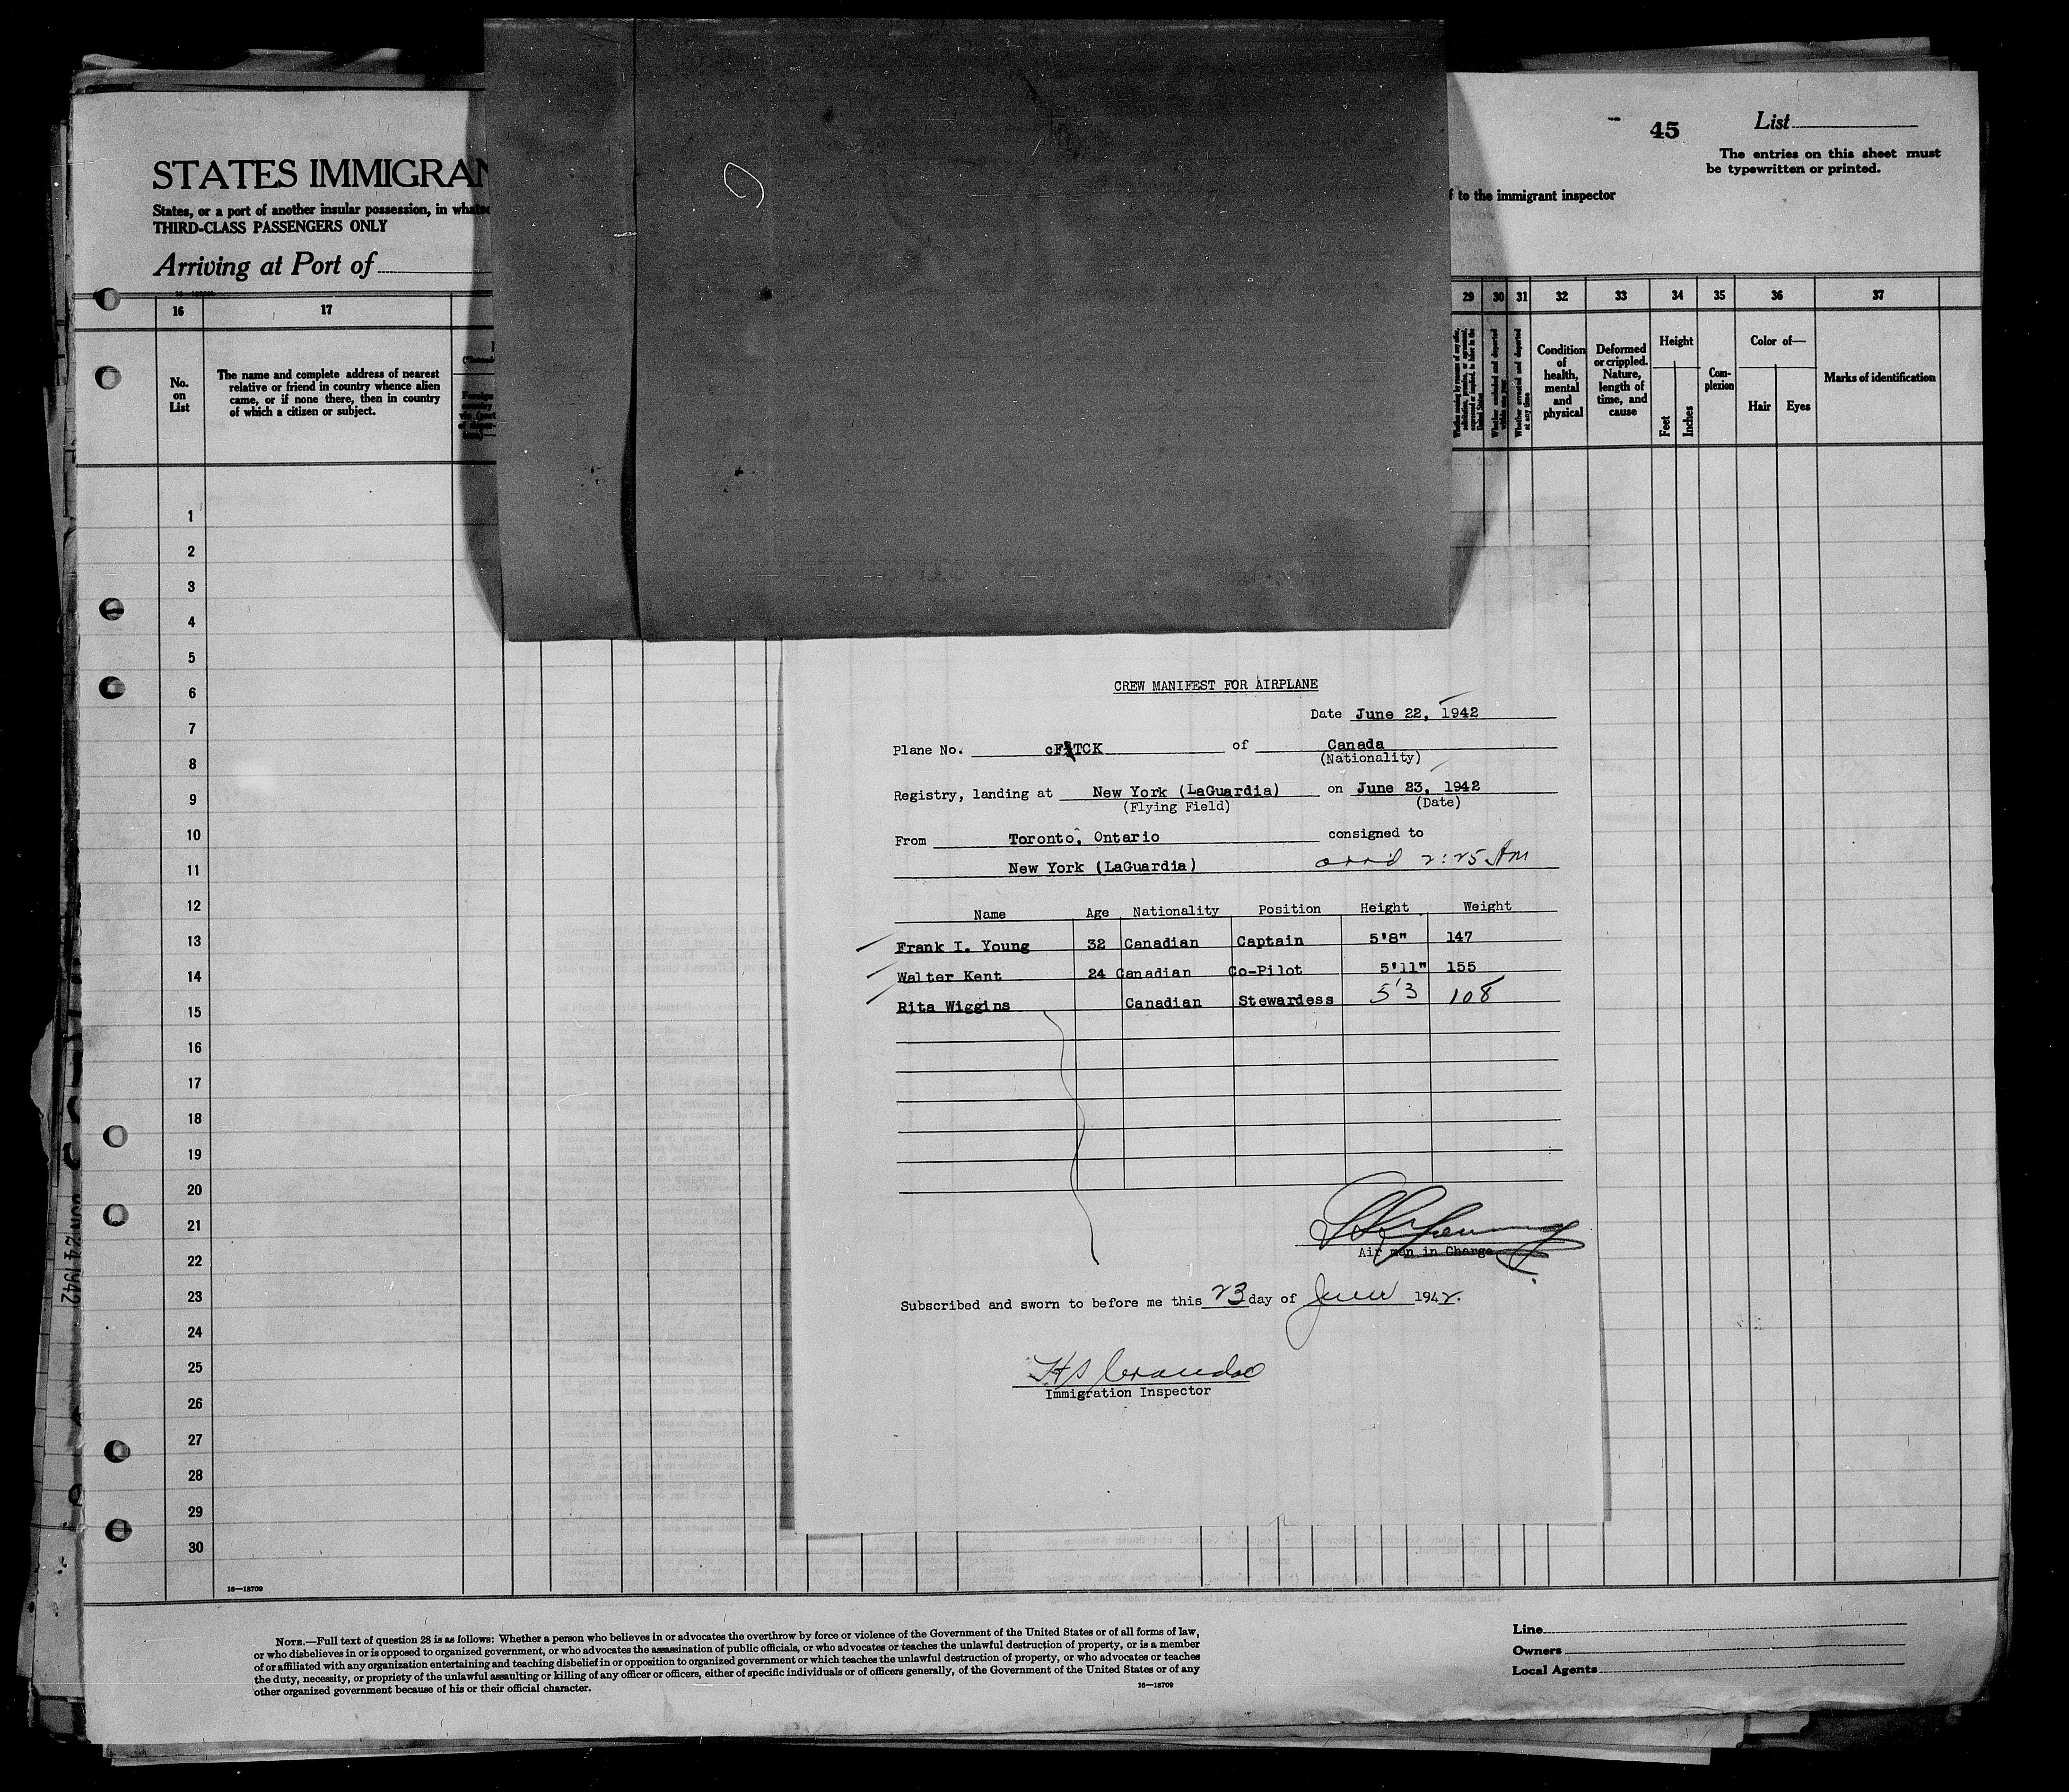 45
List
The entries on this sheet must
be typewritten or printed.
STATES IMMIGRAN
f to the immigrant inspector
States, or a port of another insular possession, in
THIRD-CLASS PASSENGERS ONLY
Arriving at Port of
16 17
29 30 31 32 33 34 35 36 37
No.
on
List
The name and complete address of nearest
relative or friend in country whence alien
came, or if none there, then in country
of which a citizen or subject.
Whether excluded and deported
within one year
Whether arrested and deported
at any time
Condition
of
health,
mental
and
physical
Deformed
or crippled.
Nature,
length of
time, and
cause
Height
Feet
Inches
Com-
plexion
Color of—
Hair Eyes
Marks of identification
1
2
3
4
5
6
7
8
9
10
11
12
13
14
15
16
17
18
19
20
21
22
23
24
25
26
27
28
29
30
16—18709
CREW MANIFEST FOR AIRPLANE
Date June 22, 1942
Plane No. of Canada
(Nationality)
Registry, landing at New York (LaGuardia) on June 23, 1942
(Flying Field) (Date)
From Toronto, Ontario consigned to
New York (LaGuardia) arrd 2:25 AM
Name Age Nationality Position Height Weight
Frank I. Young 32 Canadian Captain 5'8" 147
Walter Kent 24 Canadian Co-Pilot 5'11" 155
Rita Wiggins Canadian Stewardess 5'3 108
Air men in Charge
Subscribed and sworn to before me this 23 day of June 1942.
Immigration Inspector
JUN 24 1942
NOTE.—Full text of question 28 is as follows: Whether a person who believes in or advocates the overthrow by force or violence of the Government of the United States or of all forms of law,
or who disbelieves in or is opposed to organized government, or who advocates the assassination of public officials, or who advocates or teaches the unlawful destruction of property, or is a member
of or affiliated with any organization entertaining and teaching disbelief in or opposition to organized government or which teaches the unlawful destruction of property, or who advocates or teaches
the duty, necessity, or propriety of the unlawful assaulting or killing of any officer or officers, either of specific individuals or of officers generally, of the Government of the United States or of any
other organized government because of his or their official character.
16—18709
Line
Owners
Local Agents